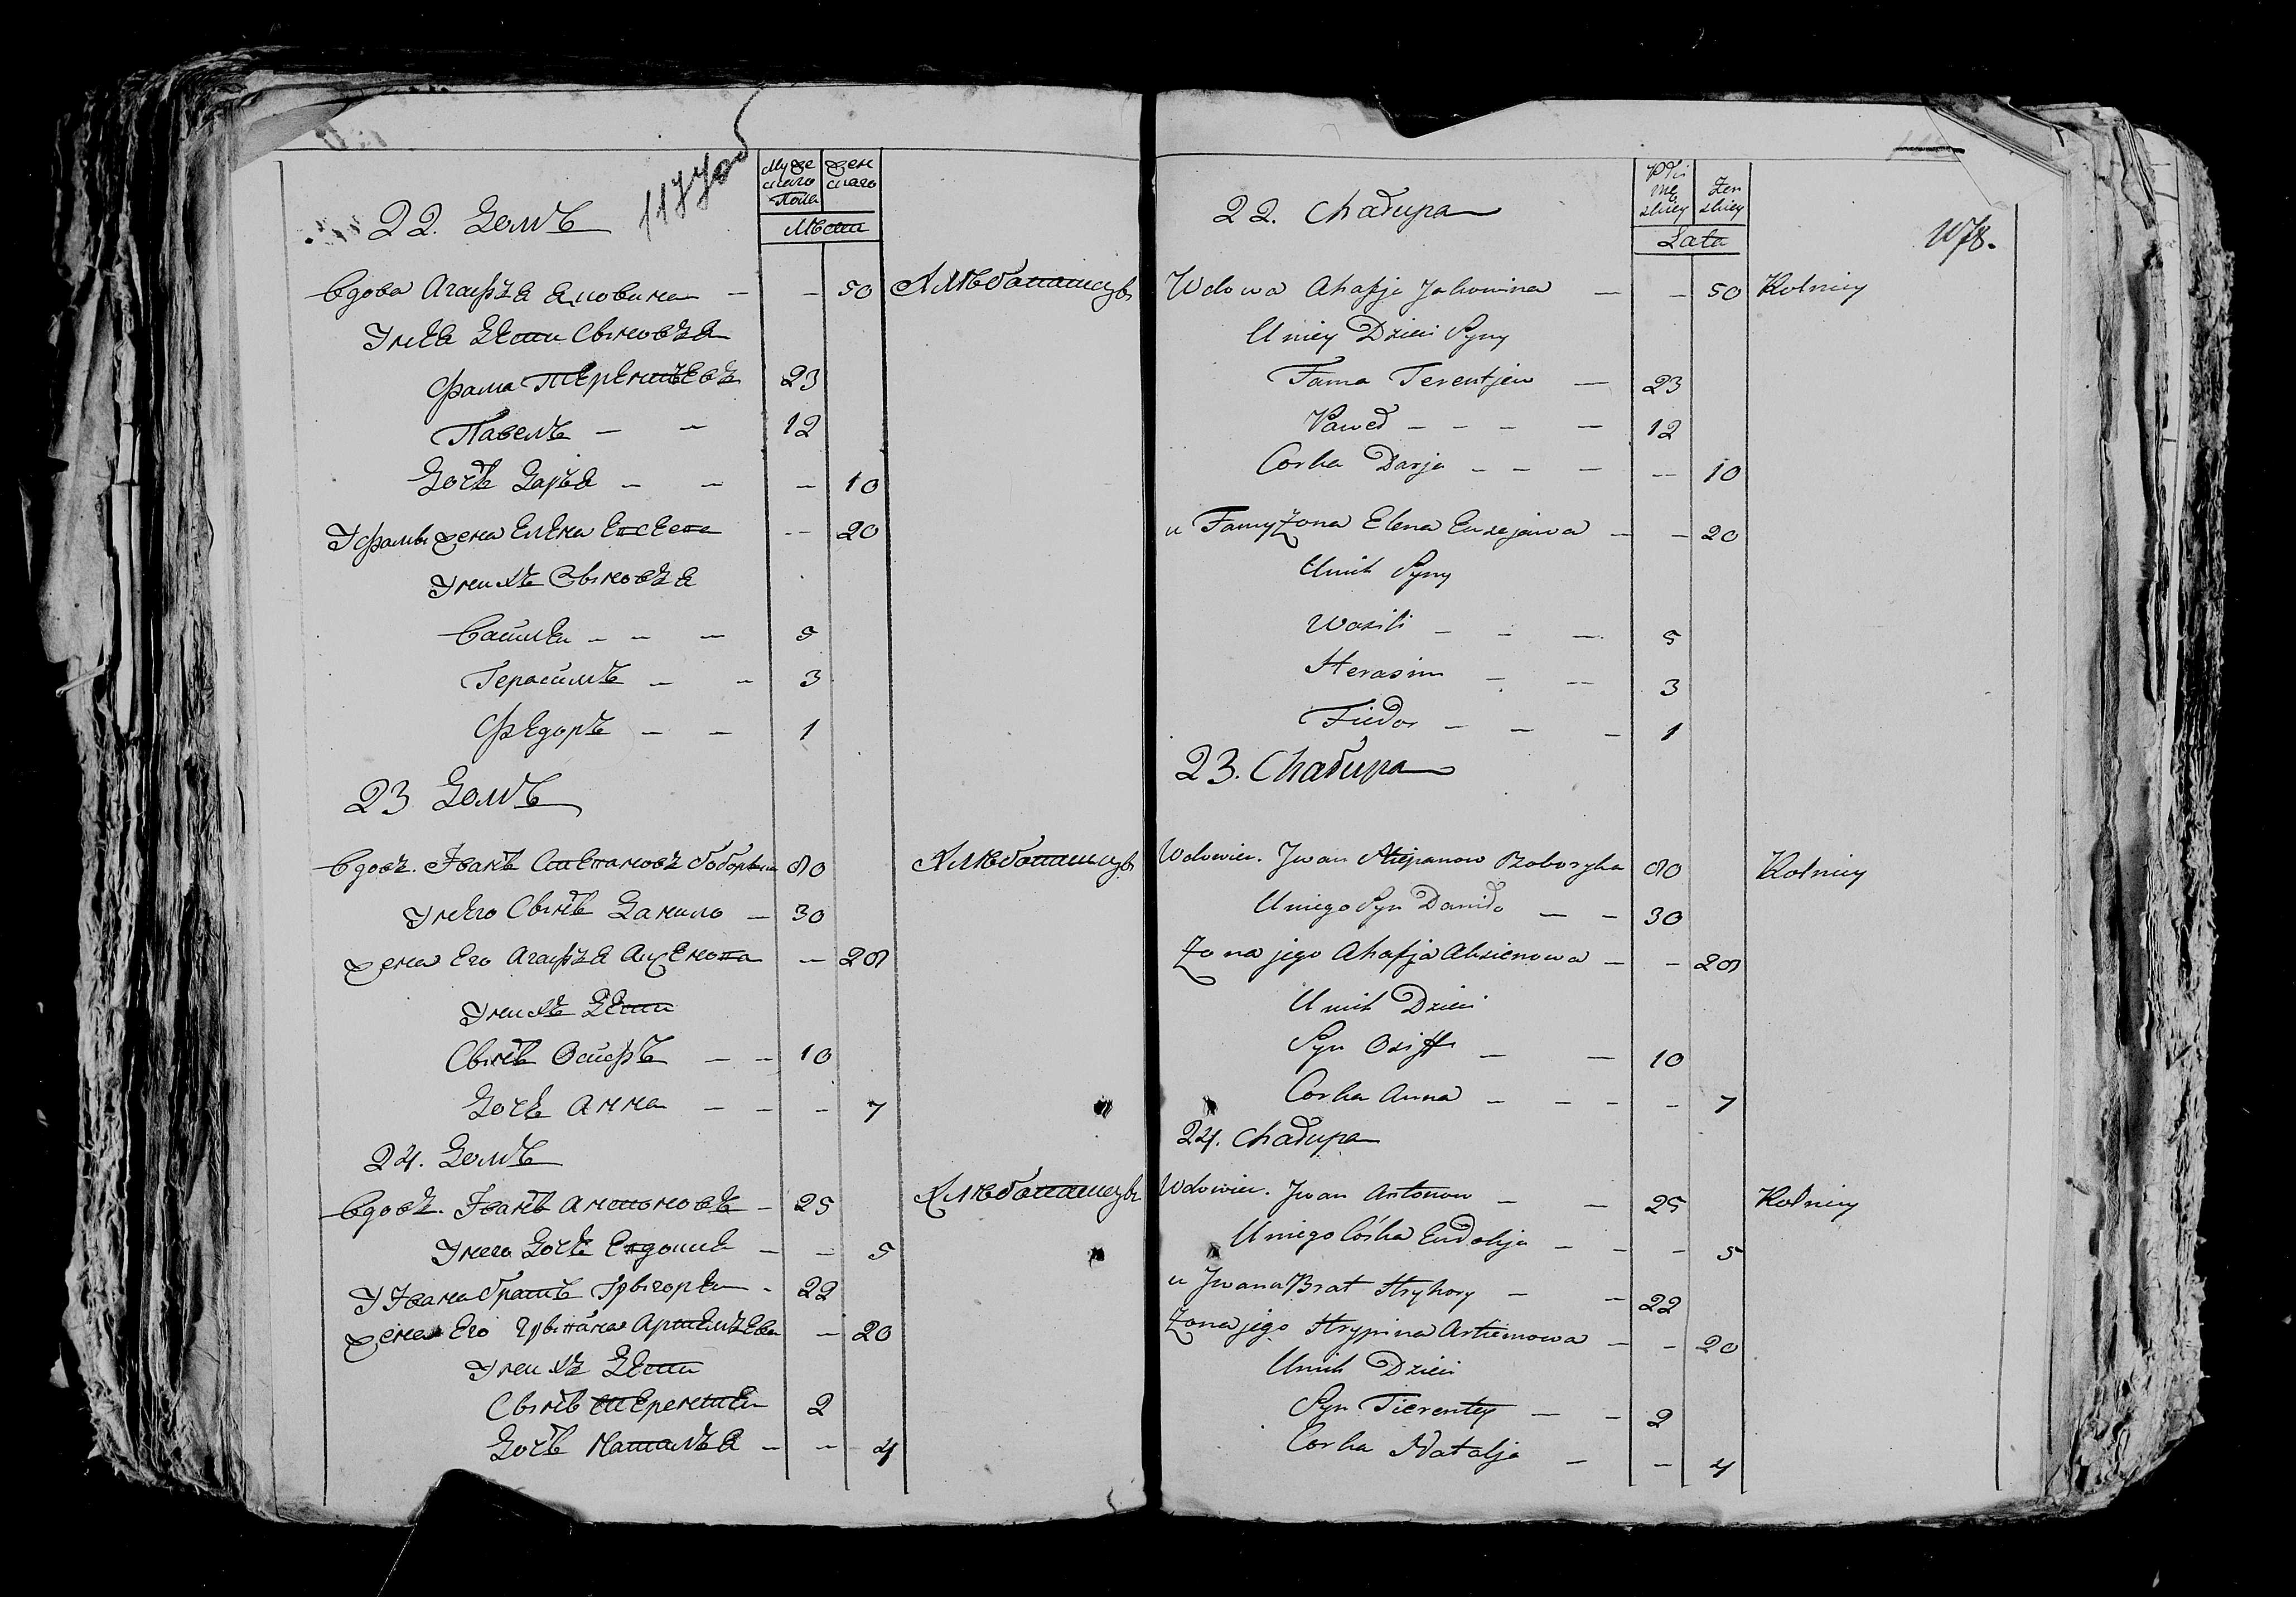 22. Домъ
Мужескаго Пола
Женскаго
Лѣта
Вдова Агафья Яковина — — 50 Хлѣбопашцы
У нея Дети Сыновья
Фама Терентьевъ 23
Павелъ — — 12
Дочь Дарья — — — 10
У Фамы жена Елена Евсеева -- 20
У них Сыновья
Васили — — — 5
Герасимъ — — 3
Федоръ — — 1
23 Домъ
Вдовъ. Иванъ Степановъ Боборыка 80 Хлѣбопашцы
У него Сынъ Данило — 30
жена Его Агафья Аксенова — 28
У них Дети
Сынъ Осифъ — — 10
Дочь Анна — — — 7
24. Домъ
Вдовъ. Иванъ Антоновъ — 25 Хлѣбопашцы
У него Дочь Евдокия — — 5
У Ивана братъ Грыгори - 22
жена Его Грыпина Артемьева — 20
У них Дети
Сынъ Терентеи 2
Дочь Наталья — — 4
22. Chałupa
Płci męzkiey
Żeńskiey
Lata
178.
Wdowa Ahafja Jakowina — — 50 Rolnicy
U niey Dzieci Syny
Fama Terentjew — 23
Paweł — — — — 12
Corka Darja — — — — 10
u Famy Żona Elena Euzejawa — — 20
U nich Syny
Wasili — — — 5
Herasim — — 3
Fiedor — — — 1
23. Chałupa
Wdowiec. Jwan Stiepanow Boboryka 80 Rolnicy
U niego Syn Daniło — — 30
Żona jego Ahafja Aksienowa — — 28
U nich Dzieci
Syn Osiff — — 10
Corka Anna — — — — 7
24. Chałupa
Wdowiec. Jwan Antonow — — 25 Rolnicy
U niego Córka Eudokja — — — 5
u Jwana Brat Hryhory — — 22
Żona jego Hrypina Artiemowa — — 20
U nich Dzieci
Syn Tierentey — — 2
Corka Natalja — — 4